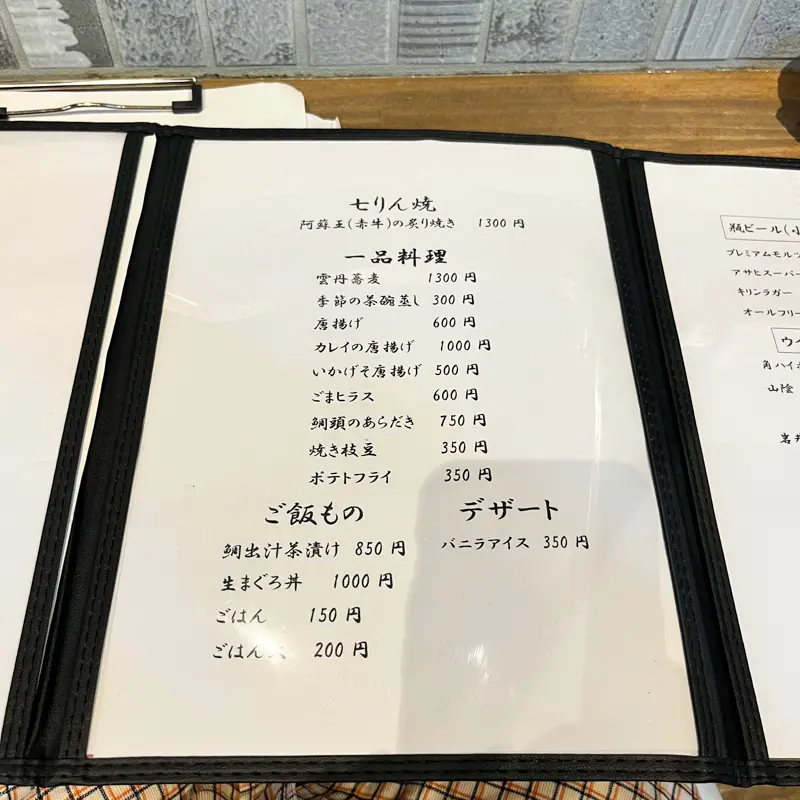 七りん焼
阿蘇王(赤牛)の炙り焼き 1300 円
一品料理
雲丹蕎麦 1300 円
季節の茶碗蒸し 300 円
唐揚げ 600 円
カレイの唐揚げ 1000 円
いかげそ唐揚げ 500 円
ごまヒラス 600 円
鯛頭のあらだき 750 円
焼き枝豆 350 円
ポテトフライ 350 円
ご飯もの
鯛出汁茶漬け 850 円
生まぐろ丼 1000 円
ごはん 150 円
ごはん大 200 円
デザート
バニラアイス 350 円
瓶ビール(小
プレミアムモルツ
アサヒスーパー
キリンラガー
オールフリー
ウイ
角ハイボ
山陰
岩井